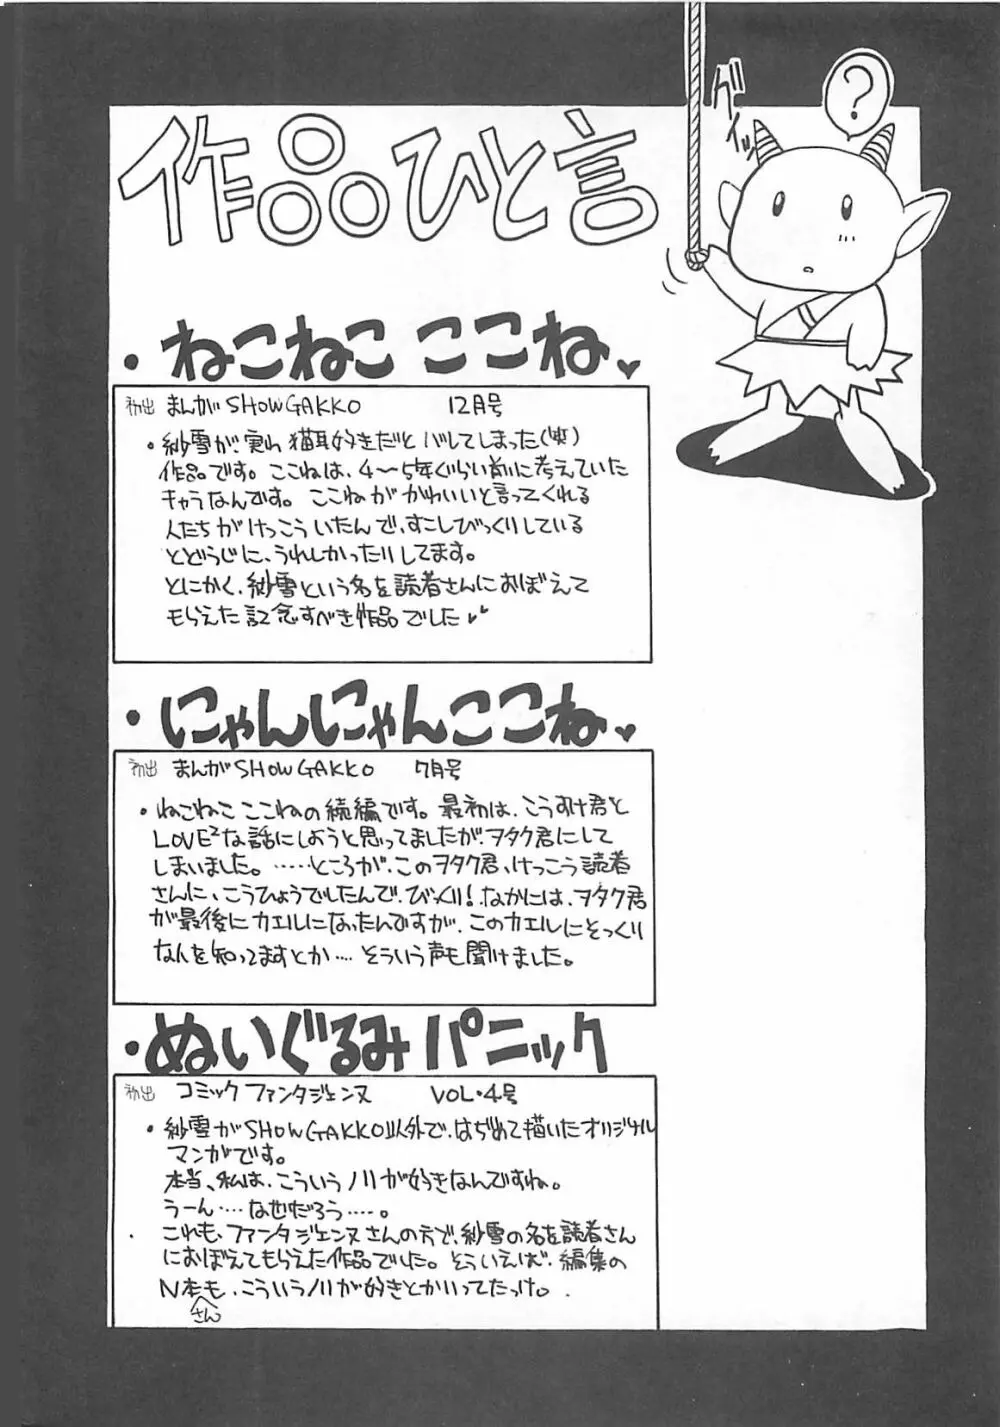 作品ひと言
グイッ
?
・ねこねこ ここね♥
初出 まんがSHOW GAKKO 12月号
・紗雪が、実は猫耳好きだとバレてしまった(笑)
作品です。ここねは、4〜5年ぐらい前に考えていた
キャラなんです。ここねがかわいいと言ってくれる
人たちがけっこういたんで、すこしびっくりしている
とどうじに、うれしかったりしてます。
とにかく、紗雪という名を読者さんにおぼえて
もらえた記念すべき作品でした♥
・にゃんにゃんここね♥
初出 まんがSHOW GAKKO 7月号
・ねこねこ ここねの続編です。最初は、こうすけ君と
LOVE²な話にしようと思ってましたが、ヲタク君にして
しまいました。……ところが、このヲタク君、けっこう読者
さんに、こうひょうでしたんで、びっくり!なかには、ヲタク君
が最後にカエルになったんですが、このカエルにそっくり
なんを知ってますとか…、そういう声も聞けました。
・ぬいぐるみパニック
初出 コミックファンタジェンヌ VOL・4号
・紗雪がSHOW GAKKO以外で、はぢめて描いたオリジナル
マンガです。
本当、私は、こういうノリが好きなんですね。
うーん……なぜだろう……。
これも、ファンタジェンヌさんの方で、紗雪の名を読者さん
におぼえてもらえた作品でした。そういえば、編集の
N本さんも、こういうノリが好きとかいってたっけ。